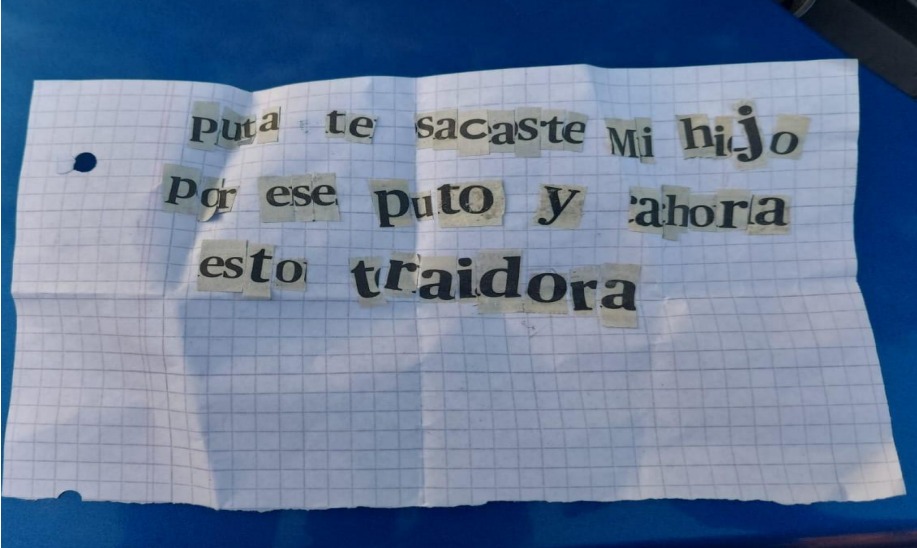 puta te sacaste Mi hijo
por ese puto y ahora
esto traidora